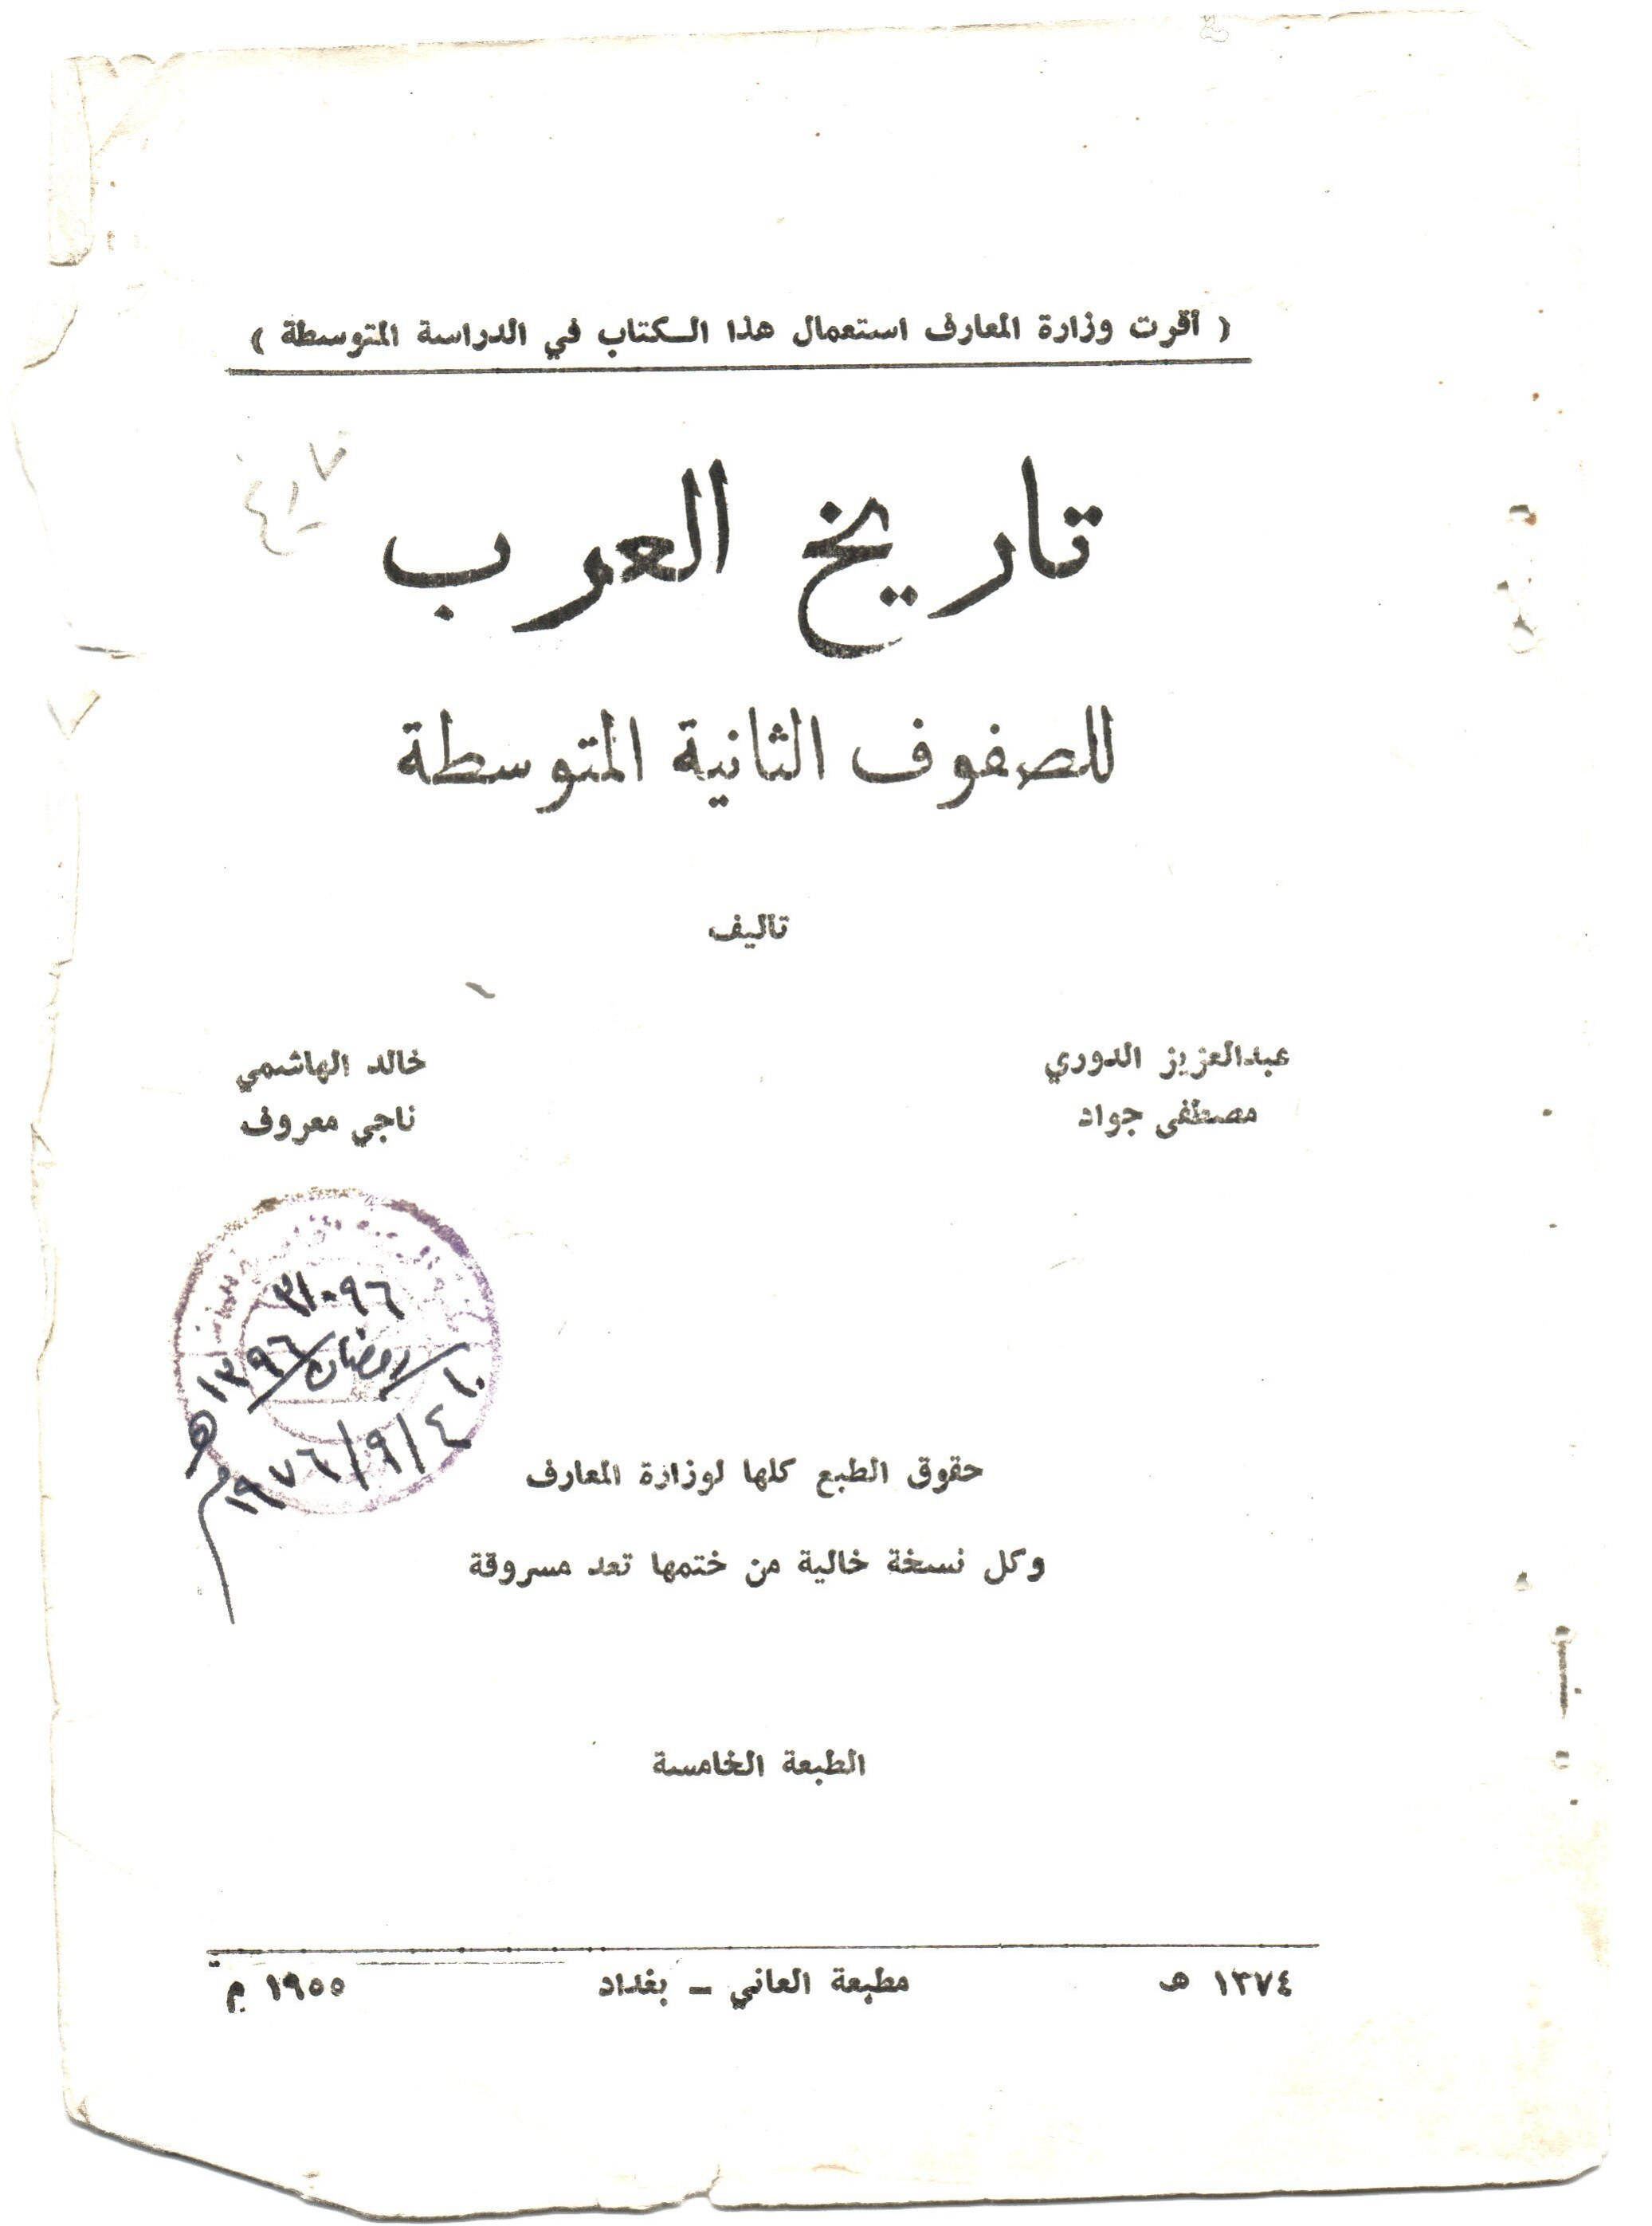 ( أقرت وزارة المعارف استعمال هذا الكتاب في الدراسة المتوسطة )
تاريخ العرب
للصفوف الثانية المتوسطة
تأليف
عبدالعزيز الدوري خالد الهاشمي
مصطفى جواد ناجي معروف
٣١٠٩٦
١٠/رمضان/١٣٩٦ هـ
٤/٩/١٩٧٦ م
حقوق الطبع كلها لوزارة المعارف
وكل نسخة خالية من ختمها تعد مسروقة
الطبعة الخامسة
١٣٧٤ هـ مطبعة العاني - بغداد ١٩٥٥ م